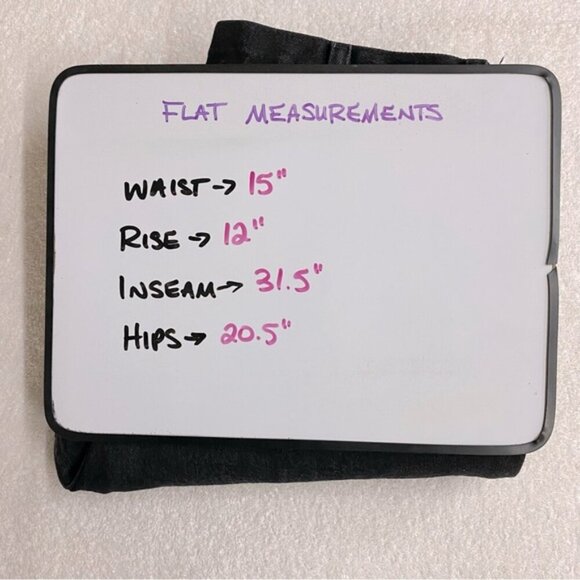 FLAT MEASUREMENTS
WAIST→ 15"
RISE → 12"
INSEAM→ 31.5"
HIPS→ 20.5"